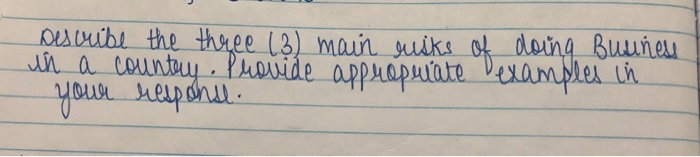 Describe the three (3) main risks of doing Business
in a country. Provide appropriate examples in
your response.